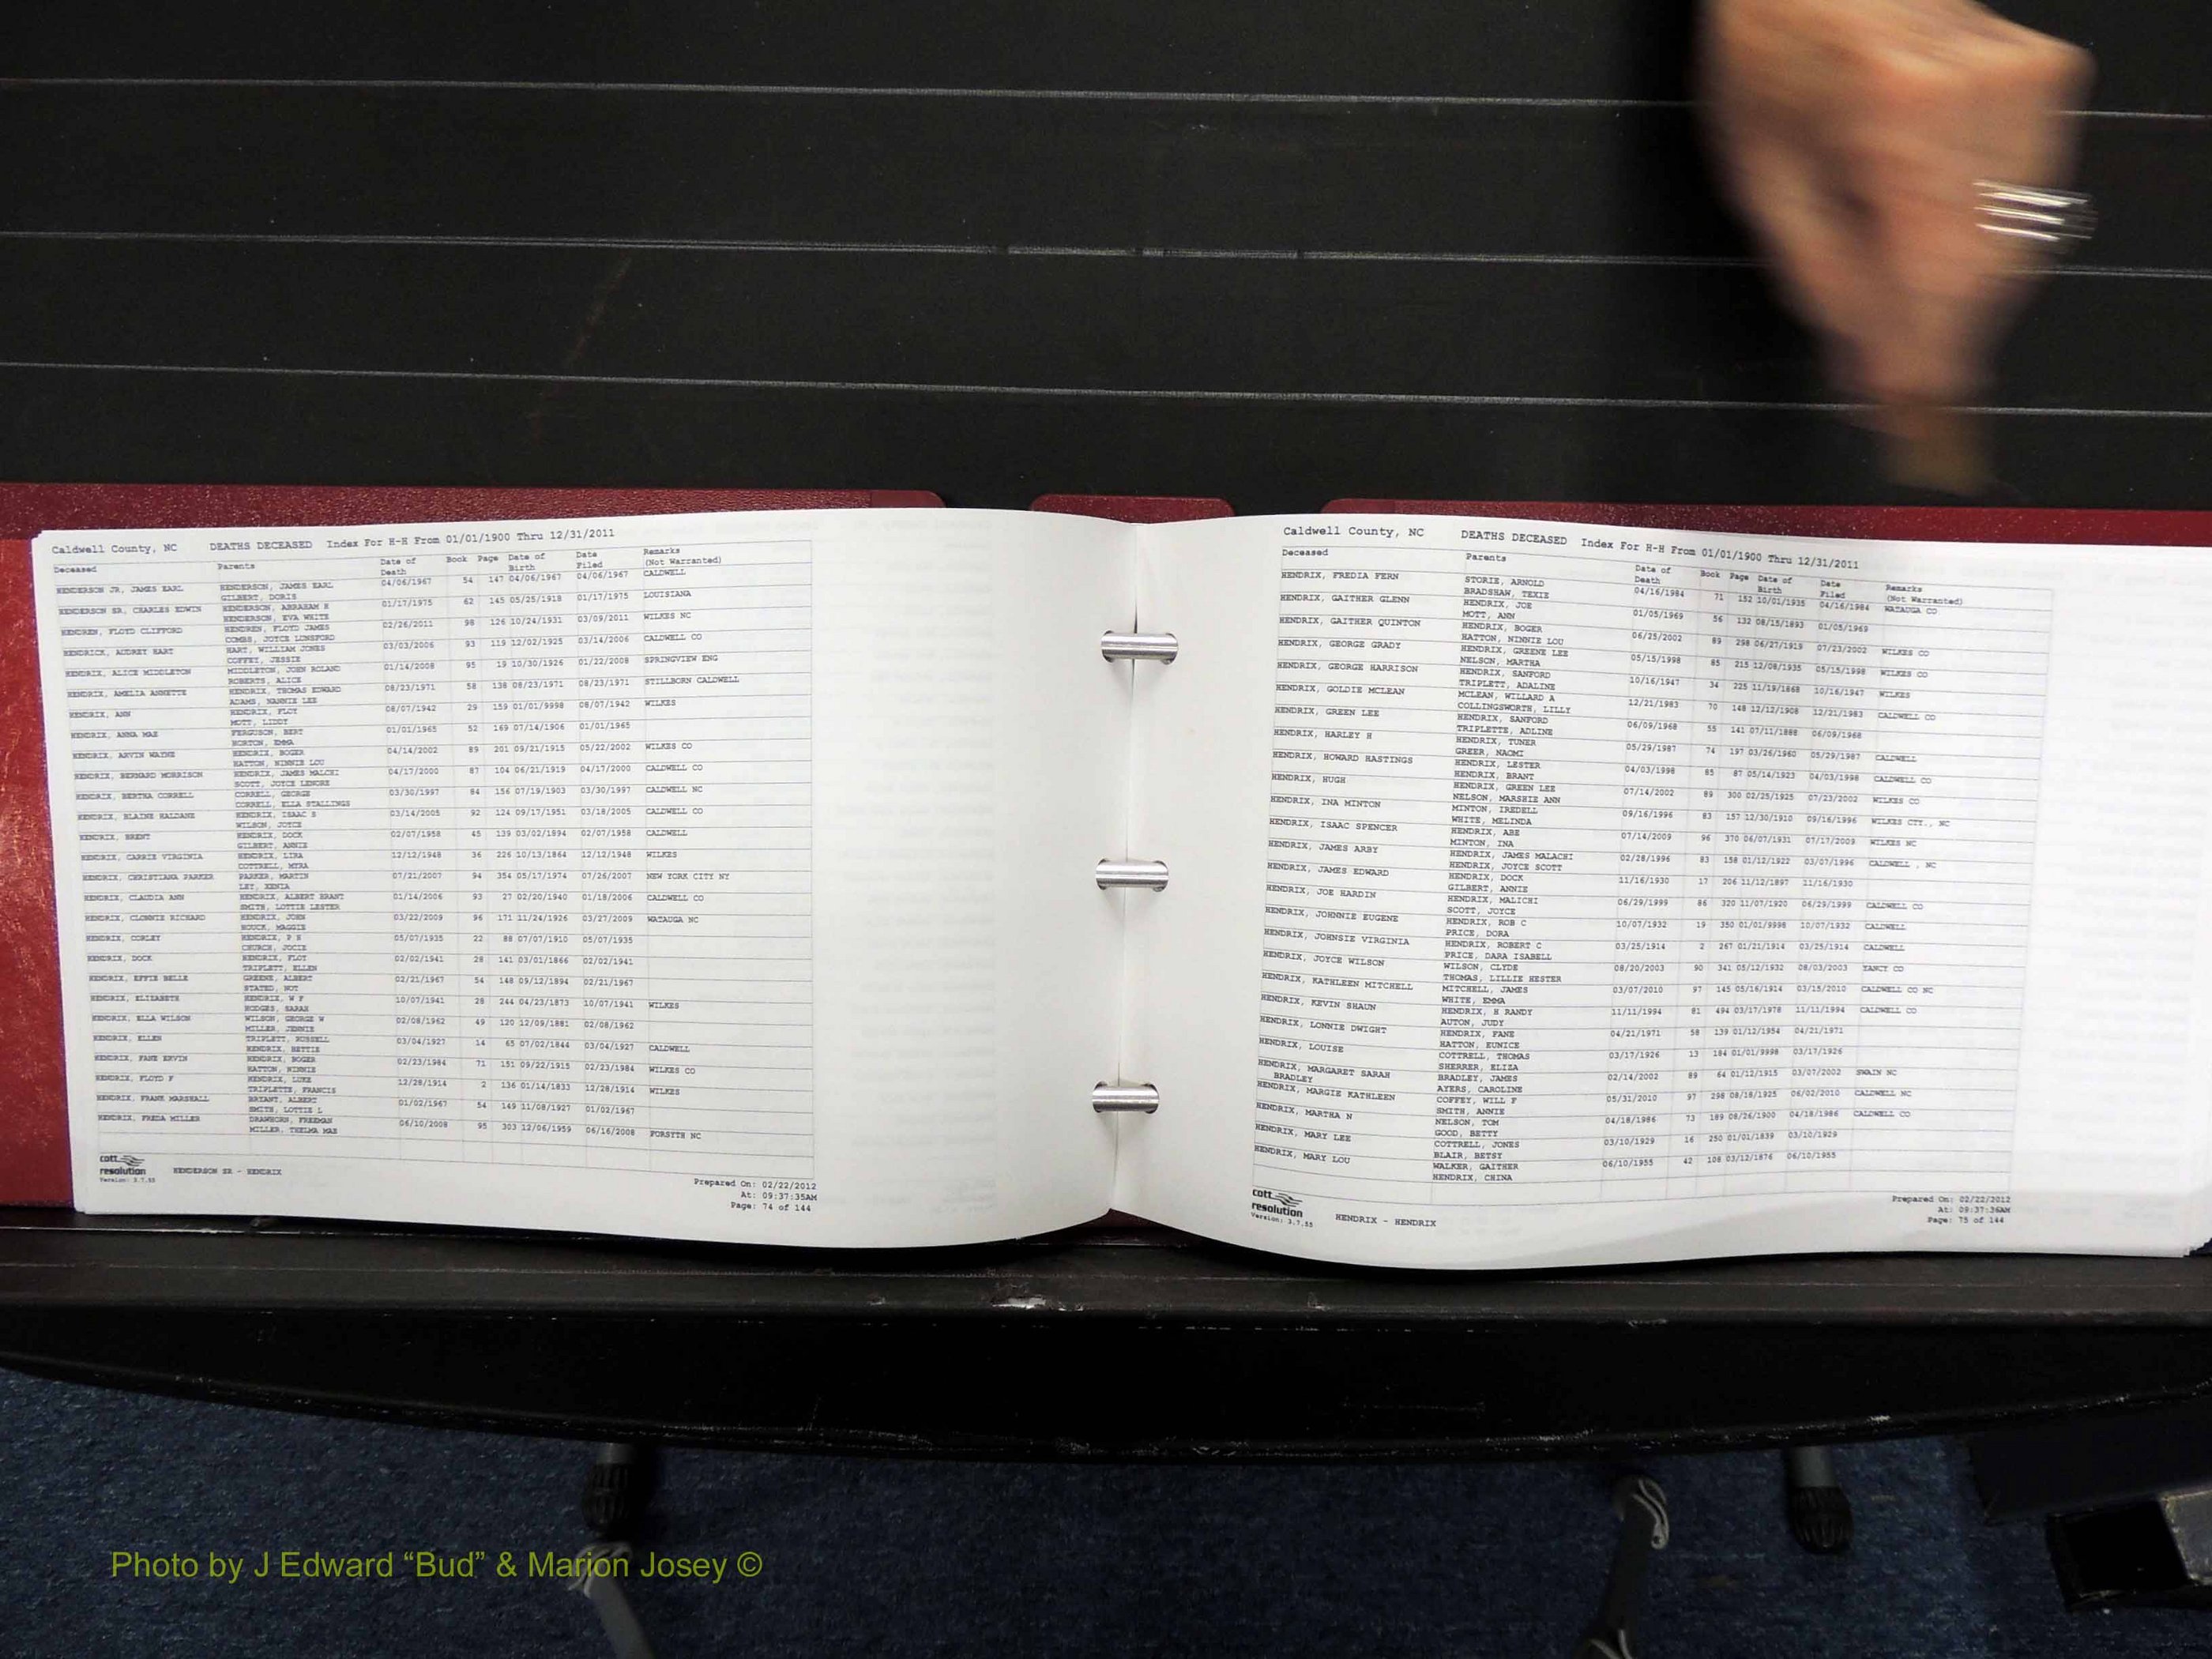 Caldwell County, NC DEATHS DECEASED Index For H-H From 01/01/1900 Thru 12/31/2011
Deceased Parents Date of Death Book Page Date of Birth Date Filed Remarks (Not Warranted)
HENDERSON JR, JAMES EARL HENDERSON, JAMES EARL 04/06/1967 54 147 04/06/1967 04/06/1967 CALDWELL
GILBERT, DORIS
HENDERSON SR, CHARLES EDWIN HENDERSON, ABRAHAM H 01/17/1975 62 145 05/25/1918 01/17/1975 LOUISIANA
HENDERSON, EVA WHITE
HENDREN, FLOYD CLIFFORD HENDREN, FLOYD JAMES 02/26/2011 98 126 10/24/1931 03/09/2011 WILKES NC
COMBS, JOYCE LUNSFORD
HENDRICK, AUDREY HART HART, WILLIAM JONES 03/03/2006 93 119 12/02/1925 03/14/2006 CALDWELL CO
COFFEY, JESSIE
HENDRIX, ALICE MIDDLETON MIDDLETON, JOHN ROLAND 01/14/2008 95 19 10/30/1926 01/22/2008 SPRINGVIEW ENG
ROBERTS, ALICE
HENDRIX, AMELIA ANNETTE HENDRIX, THOMAS EDWARD 08/23/1971 58 138 08/23/1971 08/23/1971 STILLBORN CALDWELL
ADAMS, NANNIE LEE
HENDRIX, ANN HENDRIX, FLOY 08/07/1942 29 159 01/01/9998 08/07/1942 WILKES
MOTT, LIDDY
HENDRIX, ANNA MAE FERGUSON, BERT 01/01/1965 52 169 07/14/1906 01/01/1965
HORTON, EMMA
HENDRIX, ARVIN WAYNE HENDRIX, BOGER 04/14/2002 89 201 09/21/1915 05/22/2002 WILKES CO
HATTON, NINNIE LOU
HENDRIX, BERNARD MORRISON HENDRIX, JAMES MALCHI 04/17/2000 87 104 06/21/1919 04/17/2000 CALDWELL CO
SCOTT, JOYCE LENORE
HENDRIX, BERTHA CORRELL CORRELL, GEORGE 03/30/1997 84 156 07/19/1903 03/30/1997 CALDWELL NC
CORRELL, ELLA STALLINGS
HENDRIX, BLAINE HALDANE HENDRIX, ISAAC S 03/14/2005 92 124 09/17/1951 03/18/2005 CALDWELL CO
WILSON, JOYCE
HENDRIX, BRENT HENDRIX, DOCK 02/07/1958 45 139 03/02/1894 02/07/1958 CALDWELL
GILBERT, ANNIE
HENDRIX, CARRIE VIRGINIA HENDRIX, LIRA 12/12/1948 36 226 10/13/1864 12/12/1948 WILKES
COTTRELL, MYRA
HENDRIX, CHRISTIANA PARKER PARKER, MARTIN 07/21/2007 94 354 05/17/1974 07/26/2007 NEW YORK CITY NY
LET, XENIA
HENDRIX, CLAUDIA ANN HENDRIX, ALBERT BRANT 01/14/2006 93 27 02/20/1940 01/18/2006 CALDWELL CO
SMITH, LOTTIE LESTER
HENDRIX, CLONNIE RICHARD HENDRIX, JOHN 03/22/2009 96 171 11/24/1926 03/27/2009 WATAUGA NC
HOUCK, MAGGIE
HENDRIX, CORLEY HENDRIX, P H 05/07/1935 22 88 07/07/1910 05/07/1935
CHURCH, JOCIE
HENDRIX, DOCK HENDRIX, FLOY 02/02/1941 28 141 03/01/1866 02/02/1941
TRIPLETT, ELLEN
HENDRIX, EFFIE BELLE GREENE, ALBERT 02/21/1967 54 148 09/12/1894 02/21/1967
STATED, NOT
HENDRIX, ELIZABETH HENDRIX, W F 10/07/1941 28 244 04/23/1873 10/07/1941 WILKES
HODGES, SARAH
HENDRIX, ELLA WILSON WILSON, GEORGE W 02/08/1962 49 120 12/09/1881 02/08/1962
MILLER, JENNIE
HENDRIX, ELLEN TRIPLETT, RUSSELL 03/04/1927 14 65 07/02/1844 03/04/1927 CALDWELL
HENDRIX, BETTIE
HENDRIX, FANE ERVIN HENDRIX, BOGER 02/23/1984 71 151 09/22/1915 02/23/1984 WILKES CO
HATTON, NINNIE
HENDRIX, FLOYD F HENDRIX, LUKE 12/28/1914 2 136 01/14/1833 12/28/1914 WILKES
TRIPLETTE, FRANCIS
HENDRIX, FRANK MARSHALL BRYANT, ALBERT 01/02/1967 54 149 11/08/1927 01/02/1967
SMITH, LOTTIE L
HENDRIX, FREDA MILLER DRAWHORN, FREEMAN 06/10/2008 95 303 12/06/1959 06/16/2008 FORSYTH NC
MILLER, THELMA MAE
cott
resolution
Version: 3.7.55
HENDERSON SR - HENDRIX
Prepared On: 02/22/2012
At: 09:37:35AM
Page: 74 of 144
Caldwell County, NC DEATHS DECEASED Index For H-H From 01/01/1900 Thru 12/31/2011
Deceased Parents Date of Death Book Page Date of Birth Date Filed Remarks (Not Warranted)
HENDRIX, FREDIA FERN STORIE, ARNOLD 04/16/1984 71 152 10/01/1935 04/16/1984 WATAUGA CO
BRADSHAW, TEXIE
HENDRIX, GAITHER GLENN HENDRIX, JOE 01/05/1969 56 132 08/15/1893 01/05/1969
MOTT, ANN
HENDRIX, GAITHER QUINTON HENDRIX, BOGER 06/25/2002 89 298 06/27/1919 07/23/2002 WILKES CO
HATTON, NINNIE LOU
HENDRIX, GEORGE GRADY HENDRIX, GREENE LEE 05/15/1998 85 215 12/08/1935 05/15/1998 WILKES CO
NELSON, MARTHA
HENDRIX, GEORGE HARRISON HENDRIX, SANFORD 10/16/1947 34 225 11/19/1868 10/16/1947 WILKES
TRIPLETT, ADALINE
HENDRIX, GOLDIE MCLEAN MCLEAN, WILLARD A 12/21/1983 70 148 12/12/1908 12/21/1983 CALDWELL CO
COLLINGSWORTH, LILLY
HENDRIX, GREEN LEE HENDRIX, SANFORD 06/09/1968 55 141 07/11/1888 06/09/1968
TRIPLETTE, ADLINE
HENDRIX, HARLEY H HENDRIX, TUNER 05/29/1987 74 197 03/26/1960 05/29/1987 CALDWELL
GREER, NAOMI
HENDRIX, HOWARD HASTINGS HENDRIX, LESTER 04/03/1998 85 87 05/14/1923 04/03/1998 CALDWELL CO
HENDRIX, BRANT
HENDRIX, HUGH HENDRIX, GREEN LEE 07/14/2002 89 300 02/25/1925 07/23/2002 WILKES CO
NELSON, MARSHIE ANN
HENDRIX, INA MINTON MINTON, IREDELL 09/16/1996 83 157 12/30/1910 09/16/1996 WILKES CTY., NC
WHITE, MELINDA
HENDRIX, ISAAC SPENCER HENDRIX, ABE 07/14/2009 96 370 06/07/1931 07/17/2009 WILKES NC
MINTON, INA
HENDRIX, JAMES ARBY HENDRIX, JAMES MALACHI 02/28/1996 83 158 01/12/1922 03/07/1996 CALDWELL , NC
HENDRIX, JOYCE SCOTT
HENDRIX, JAMES EDWARD HENDRIX, DOCK 11/16/1930 17 206 11/12/1897 11/16/1930
GILBERT, ANNIE
HENDRIX, JOE HARDIN HENDRIX, MALICHI 06/29/1999 86 320 11/07/1920 06/29/1999 CALDWELL CO
SCOTT, JOYCE
HENDRIX, JOHNNIE EUGENE HENDRIX, ROB C 10/07/1932 19 350 01/01/9998 10/07/1932 CALDWELL
PRICE, DORA
HENDRIX, JOHNSIE VIRGINIA HENDRIX, ROBERT C 03/25/1914 2 267 01/21/1914 03/25/1914 CALDWELL
PRICE, DARA ISABELL
HENDRIX, JOYCE WILSON WILSON, CLYDE 08/20/2003 90 341 05/12/1932 08/03/2003 YANCY CO
THOMAS, LILLIE HESTER
HENDRIX, KATHLEEN MITCHELL MITCHELL, JAMES 03/07/2010 97 145 05/16/1914 03/15/2010 CALDWELL CO NC
WHITE, EMMA
HENDRIX, KEVIN SHAUN HENDRIX, H RANDY 11/11/1994 81 494 03/17/1978 11/11/1994 CALDWELL CO
AUTON, JUDY
HENDRIX, LONNIE DWIGHT HENDRIX, FANE 04/21/1971 58 139 01/12/1954 04/21/1971
HATTON, EUNICE
HENDRIX, LOUISE COTTRELL, THOMAS 03/17/1926 13 184 01/01/9998 03/17/1926
SHERRER, ELIZA
HENDRIX, MARGARET SARAH BRADLEY, JAMES 02/14/2002 89 64 01/12/1915 03/07/2002 SWAIN NC
BRADLEY AYERS, CAROLINE
HENDRIX, MARGIE KATHLEEN COFFEY, WILL F 05/31/2010 97 298 08/18/1925 06/02/2010 CALDWELL NC
SMITH, ANNIE
HENDRIX, MARTHA N NELSON, TOM 04/18/1986 73 189 08/26/1900 04/18/1986 CALDWELL CO
GOOD, BETTY
HENDRIX, MARY LEE COTTRELL, JONES 03/10/1929 16 250 01/01/1839 03/10/1929
BLAIR, BETSY
HENDRIX, MARY LOU WALKER, GAITHER 06/10/1955 42 108 03/12/1876 06/10/1955
HENDRIX, CHINA
cott
resolution
Version: 3.7.55
HENDRIX - HENDRIX
Prepared On: 02/22/2012
At: 09:37:36AM
Page: 75 of 144
Photo by J Edward “Bud” & Marion Josey ©